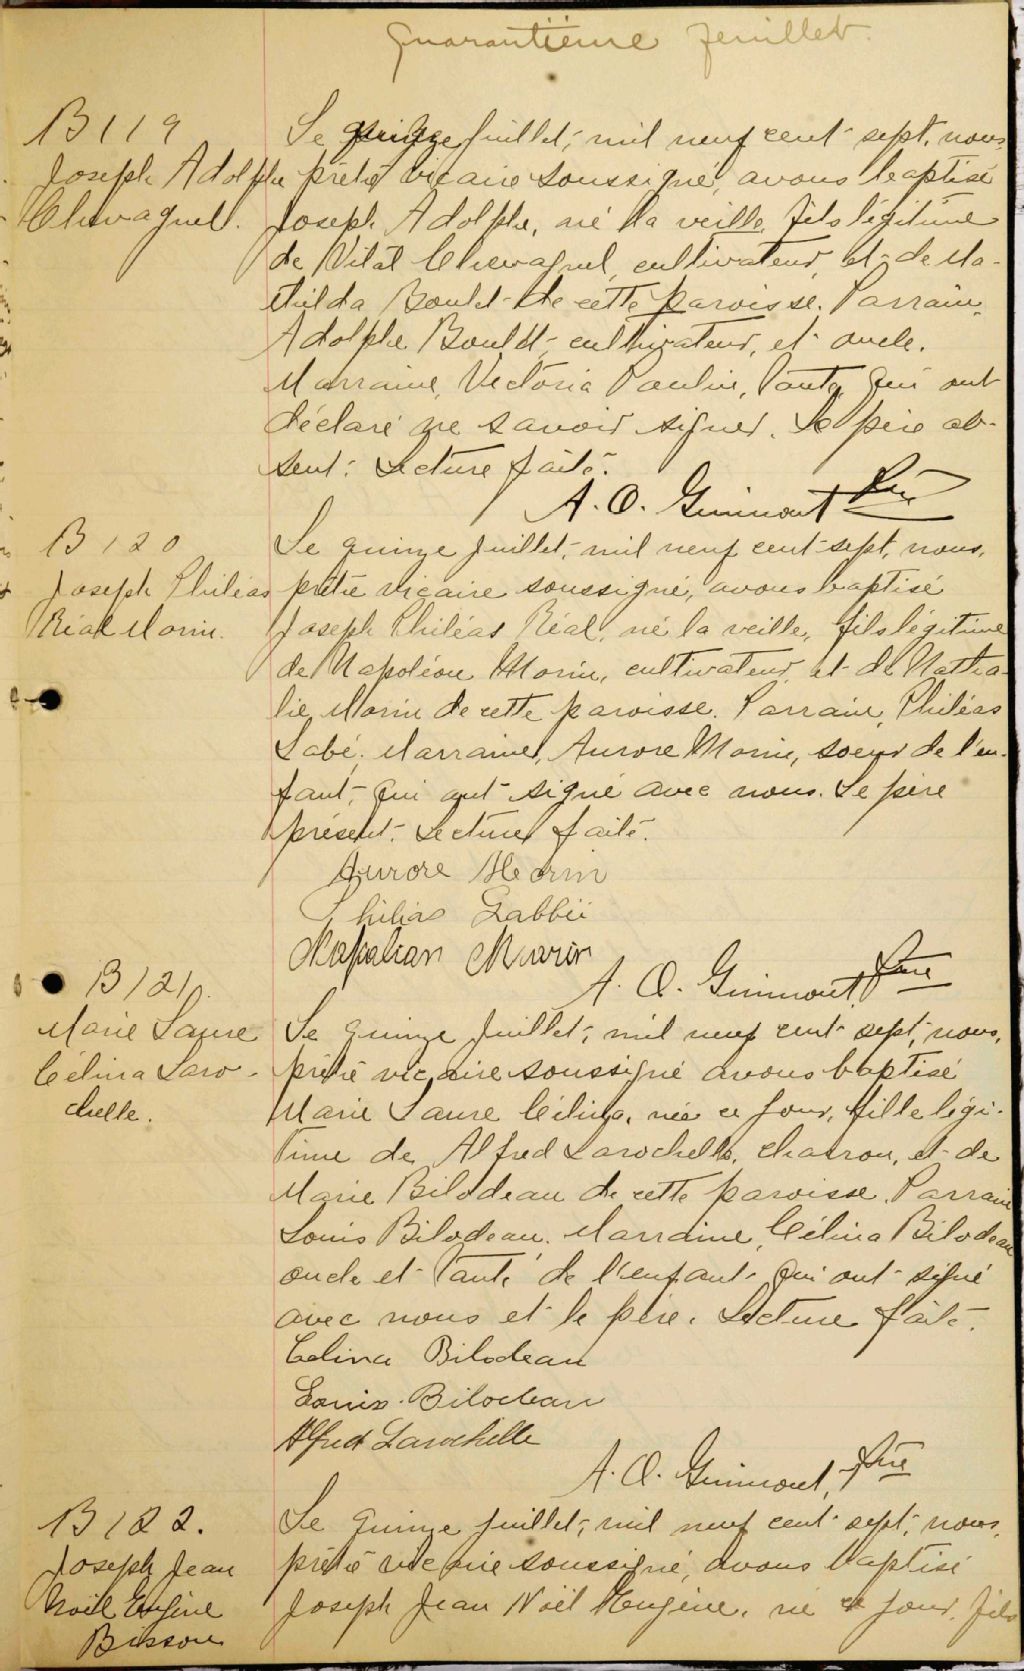 Quarantième feuillet.
B 119
Joseph Adolphe
Chevagnel.
Le quinze juillet, mil neuf cent sept, nous,
prêtre vicaire soussigné, avons baptisé
Joseph Adolphe, né la veille, fils légitime
de Vital Chevagnel, cultivateur, et de Ma-
thilda Boulet de cette paroisse. Parrain,
Adolphe Boulet, cultivateur, et oncle.
Marraine, Victoria Poulin, tante, qui ont
déclaré ne savoir signer. Le père ab-
sent. Lecture faite.
A. O. Guimont Ptre
B 120
Joseph Philéas
Réal Morin.
Le quinze juillet, mil neuf cent sept, nous,
prêtre vicaire soussigné, avons baptisé
Joseph Philéas Réal, né la veille, fils légitime
de Napoléon Morin, cultivateur, et de Natha-
lie Morin de cette paroisse. Parrain, Philéas
Labé. Marraine, Aurore Morin, soeur de l'en-
fant, qui ont signé avec nous. Le père
présent. Lecture faite.
Aurore Morin
Philias Labbé
Napolian Morin
A. O. Guimont, Ptre
B 121.
Marie Laure
Célina Laro-
chelle.
Le quinze juillet, mil neuf cent sept, nous,
prêtre vicaire soussigné avons baptisé
Marie Laure Célina, née ce jour, fille légi-
time de Alfred Larochelle, charron, et de
Marie Bilodeau de cette paroisse. Parrain
Louis Bilodeau. Marraine, Célina Bilodeau
oncle et tante de l'enfant qui ont signé
avec nous et le père. Lecture faite.
Celina Bilodeau
Louis Bilodeau
Alfred Larochelle
A. O. Guimont, Ptre
B 122.
Joseph Jean
Noël Eugène
Bisson
Le quinze juillet, mil neuf cent sept, nous,
prêtre vicaire soussigné, avons baptisé
Joseph Jean Noël Eugène, né ce jour, fils